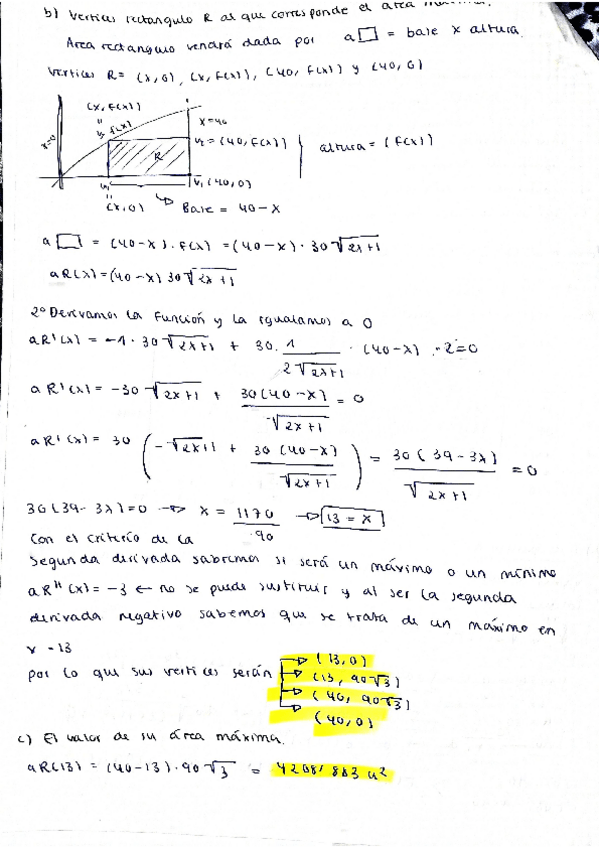 b) Vertices rectangulo R al que corresponde el area
Area rectangulo vendrá dada por a▭ = base x altura
Vertices R = (x, 0), (x, f(x)), (40, f(x)) y (40, 0)
(x, f(x))
f(x)
x=40
x=0
V2 = (40, f(x))
altura = (f(x))
R
V1 (40,0)
(x,0)
Base = 40-x
a▭ = (40-x). f(x) = (40-x) · 30√2x+1
aR(x) = (40-x) 30√2x+1
2º Derivamos la Función y la igualamos a 0
aR'(x) = -1 · 30√2x+1 + 30. 1/2√2x+1 · (40-x) · 2 = 0
aR'(x) = -30 √2x+1 + 30(40-x)/√2x+1 = 0
aR'(x) = 30 (-√2x+1 + 30(40-x)/√2x+1) = 30(39-3x)/√2x+1 = 0
30(39-3x)=0 → x = 1170/90 → 13 = x
Con el criterio de la
Segunda derivada sabremos si será un máximo o un mínimo
aR''(x) = -3 ← no se puede sustituir y al ser la segunda
derivada negativo sabemos que se trata de un máximo en
x = 13
por lo que sus vertices serán
(13,0)
(13, 90√3)
(40, 90√3)
(40,0)
c) El valor de su área máxima.
aR(13) = (40-13) · 90√3 = 4208'883 u²